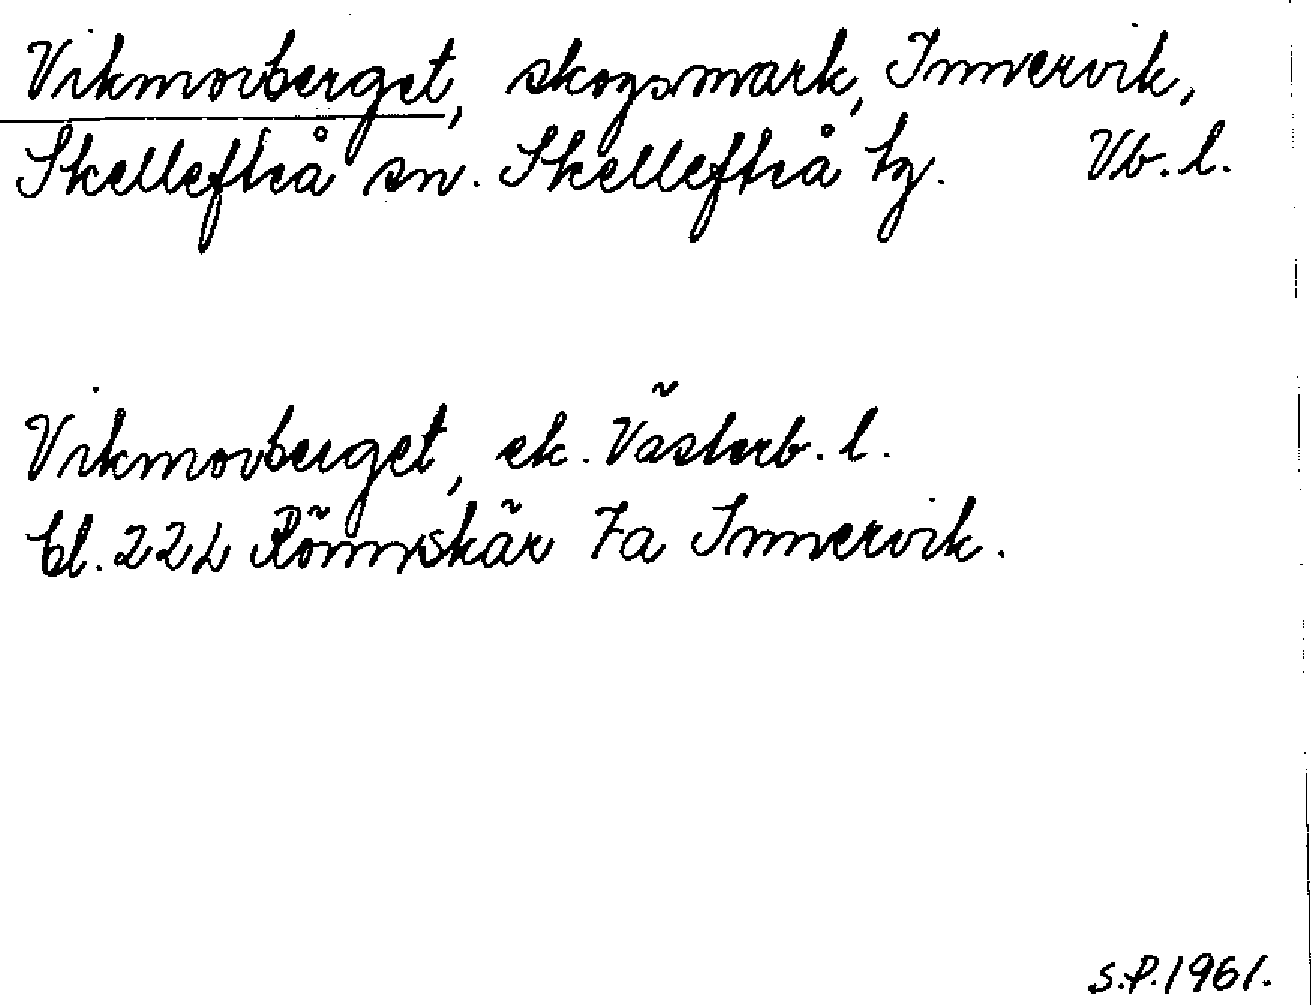 Vikmorberget, skogsmark, Innervik,
Skellefteå sn. Skellefteå tg. Vb. l.
Vikmorberget, ek. Västerb. l.
bl. 22L Rönnskär 7a Innervik.
S.P. 1961.